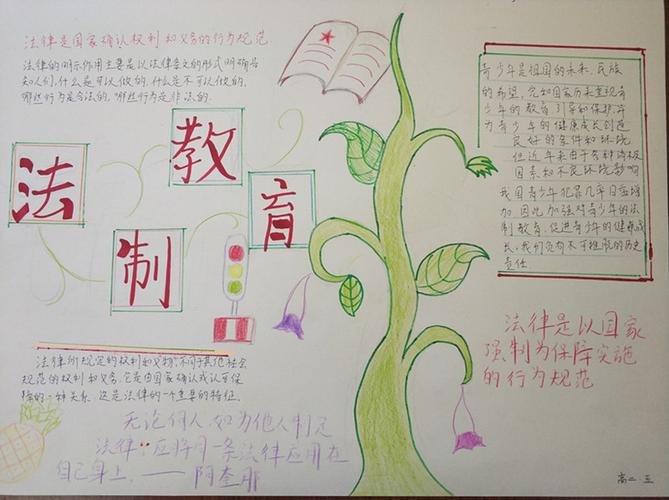 法律是国家确认权利和义务的行为规范
法律的明示作用主要是以法律条文的形式明确告
知人们,什么是可以做的,什么是不可以做的,
哪些行为是合法的,哪些行为是非法的.
法
教
制
育
法律所规定的权利和义务,不同于其他社会
规范的权利和义务,它是由国家确认或认可保
障的一种关系,这是法律的一个重要的特征.
无论何人,如为他人制定
法律,应将同一条法律应用在
自己身上.——阿奎那
青少年是祖国的未来,民族
的希望,党和国家历来重视青
少年的教育引导和保护,并
为青少年的健康成长创造
良好的条件和环境
但近年来由于各种消极
因素和不良环境影响
我国青少年犯罪几乎日益增
加,因此加强对青少年的法
制教育,促进青少年的健康成
长,我们负有不可推脱的历史
责任
法律是以国家
强制为保障实施
的行为规范
高二.五